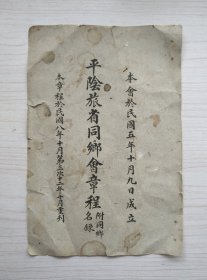 本會於民國五年十月九日成立
平陰旅省同鄉會章程
附同鄉名錄
本章程於民國八年十月第三次十二年十月重刋